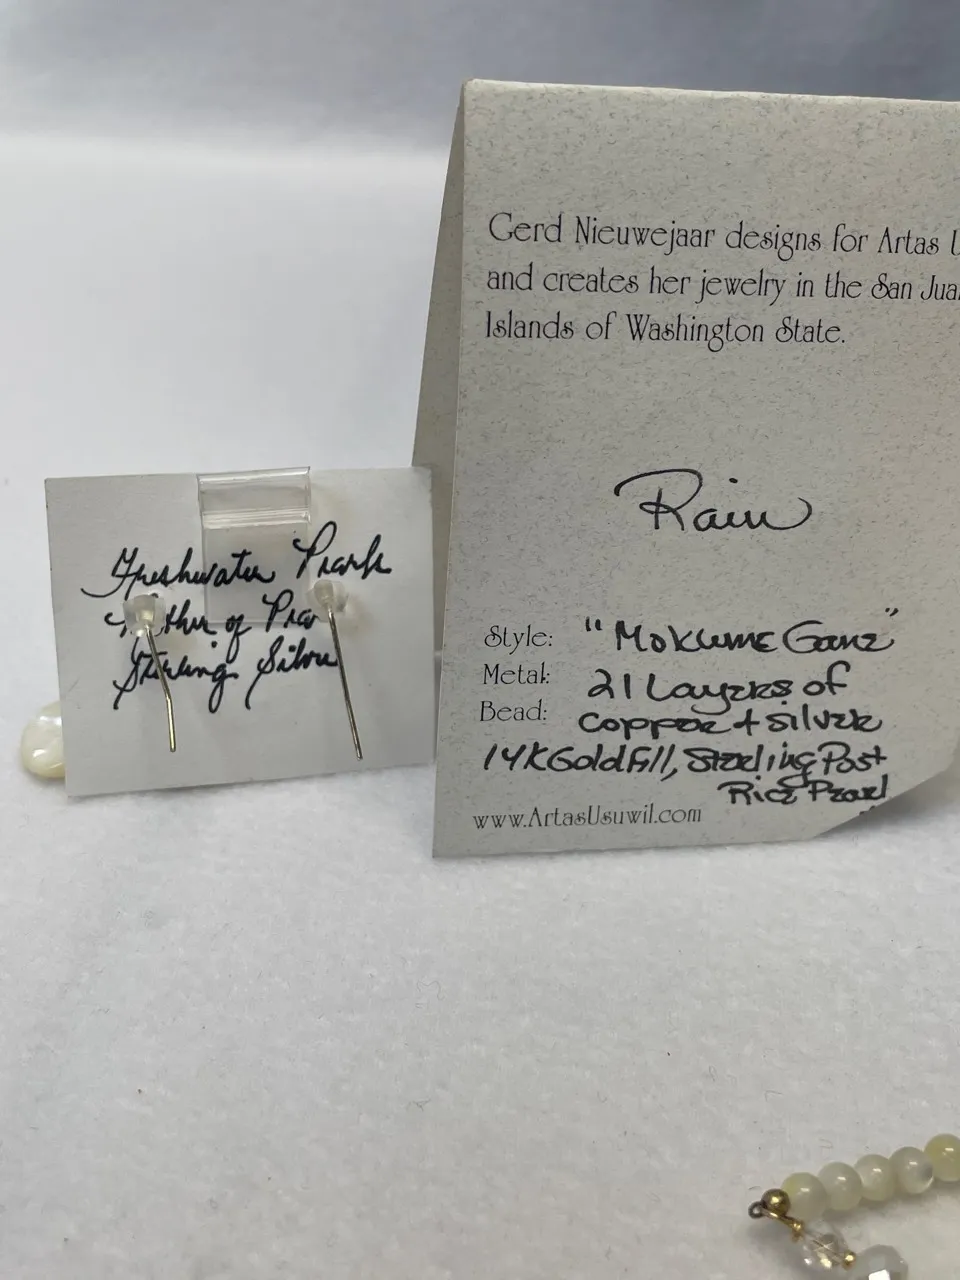 Freshwater Pearls
Mother of Pear
Sterling Silver
Gerd Nieuwejaar designs for Artas U
and creates her jewelry in the San Juan
Islands of Washington State.
Rain
Style: "Mokume Gane"
Metal: 21 Layers of
Bead: copper + silver
14K Gold Fill, Sterling Post
Rice Pearl
www.ArtasUsuwil.com